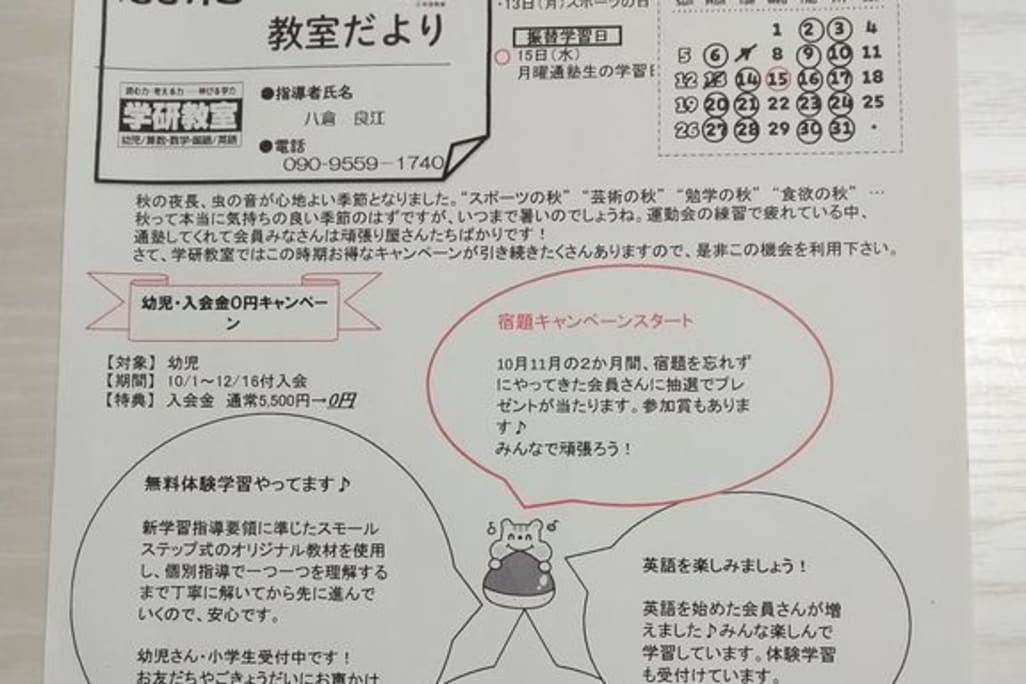 ・13日（月）スポーツの日
教室だより
振替学習日
15日（水）
月曜通塾生の学習日
1 2 3 4
5 6 7 8 9 10 11
12 13 14 15 16 17 18
19 20 21 22 23 24 25
26 27 28 29 30 31 ・
読む力・考える力 伸びる学力
学研教室
幼児/算数・数学・国語/英語
●指導者氏名
八倉 良江
●電話
090-9559-1740
秋の夜長、虫の音が心地よい季節となりました。“スポーツの秋” “芸術の秋” “勉学の秋” “食欲の秋” …
秋って本当に気持ちの良い季節のはずですが、いつまで暑いのでしょうね。運動会の練習で疲れている中、
通塾してくれて会員みなさんは頑張り屋さんたちばかりです！
さて、学研教室ではこの時期お得なキャンペーンが引き続きたくさんありますので、是非この機会を利用下さい。
幼児・入会金0円キャンペー
ン
【対象】 幼児
【期間】 10/1～12/16付入会
【特典】 入会金 通常5,500円→0円
宿題キャンペーンスタート
10月11月の２か月間、宿題を忘れず
にやってきた会員さんに抽選でプレ
ゼントが当たります。参加賞もありま
す♪
みんなで頑張ろう！
無料体験学習やってます♪
新学習指導要領に準じたスモール
ステップ式のオリジナル教材を使用
し、個別指導で一つ一つを理解する
まで丁寧に解いてから先に進んで
いくので、安心です。
幼児さん・小学生受付中です！
お友だちやごきょうだいにお声かけ
英語を楽しみましょう！
英語を始めた会員さんが増
えました♪みんな楽しんで
学習しています。体験学習
も受付けています。